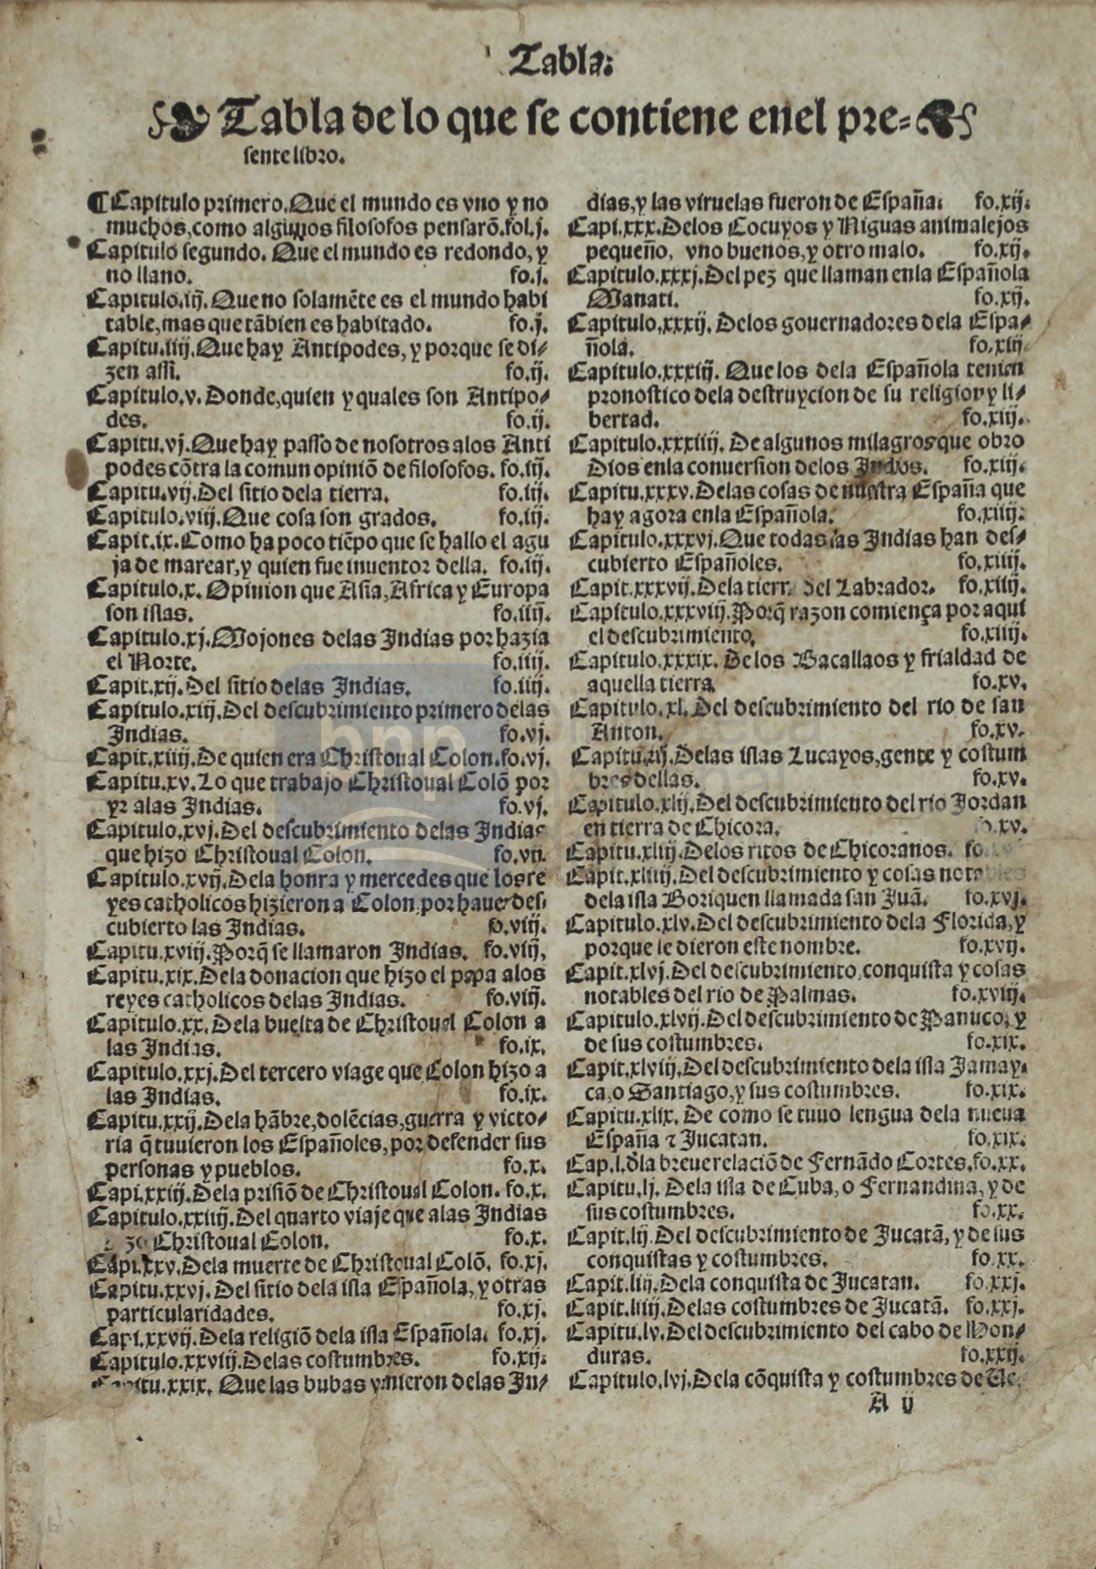 Tabla.
Tabla de lo que se contiene enel pre-
sente libro.
¶ Capitulo primero. Que el mundo es vno y no
muchos, como algunos filosofos pensarõ. fol.j.
Capitulo segundo. Que el mundo es redondo, y
no llano. fo.j.
Capitulo.iij. Que no solamẽte es el mundo habi
table, mas que tãbien es habitado. fo.j.
Capitu.iiij. Que hay Antipodes, y porque se di-
zen assi. fo.ij.
Capitulo.v. Donde, quien y quales son Antipo-
des. fo.ij.
Capitu.vj. Que hay passo de nosotros alos Anti
podes cõtra la comun opiniõ de filosofos. fo.iij.
Capitu.vij. Del sitio dela tierra. fo.iij.
Capitulo.viij. Que cosa son grados. fo.iij.
Capit.ix. Como ha poco tiẽpo que se hallo el agu
ja de marear, y quien fue inuentor della. fo.iij.
Capitulo.x. Opinion que Asia, Africa y Europa
son islas. fo.iiij.
Capitulo.xj. Mojones delas Indias por hazia
el Norte. fo.iiij.
Capit.xij. Del sitio delas Indias. fo.iiij.
Capitulo.xiij. Del descubrimiento primero delas
Indias. fo.vj.
Capit.xiiij. De quien era Christoual Colon. fo.vj.
Capitu.xv. Lo que trabajo Christoual Colõ por
yr alas Indias. fo.vj.
Capitulo.xvj. Del descubrimiento delas Indias
que hizo Christoual Colon. fo.vij.
Capitulo.xvij. Dela honra y mercedes que los re
yes catholicos hizieron a Colon, por hauer des
cubierto las Indias. fo.viij.
Capitu.xviij. Porq̃ se llamaron Indias. fo.viij.
Capitu.xix. Dela donacion que hizo el papa alos
reyes catholicos delas Indias. fo.viij.
Capitulo.xx. Dela buelta de Christoual Colon a
las Indias. fo.ix.
Capitulo.xxj. Del tercero viage que Colon hizo a
las Indias. fo.ix.
Capitu.xxij. Dela hãbre, dolẽcias, guerra y victo-
ria q̃ tuuieron los Españoles, por defender sus
personas y pueblos. fo.x.
Capi.xxiij. Dela prisiõ de Christoual Colon. fo.x.
Capitulo.xxiiij. Del quarto viaje que alas Indias
Christoual Colon. fo.x.
Capi.xxv. Dela muerte de Christoual Colõ. fo.xj.
Capitu.xxvj. Del sitio dela isla Española, y otras
particularidades. fo.xj.
Capi.xxvij. Dela religiõ dela isla Española. fo.xj.
Capitulo.xxviij. Delas costumbres. fo.xij.
Capitu.xxix. Que las bubas vinieron delas In-
dias, y las viruelas fueron de España. fo.xij.
Capi.xxx. Delos Cocuyos y Niguas animalejos
pequeño, vno buenos, y otro malo. fo.xij.
Capitulo.xxxj. Del pez que llaman enla Española
Manati. fo.xij.
Capitulo.xxxij. Delos gouernadores dela Espa-
ñola. fo.xiij
Capitulo.xxxiij. Que los dela Española tenian
pronostico dela destruycion de su religion y li-
bertad. fo.xiij.
Capitulo.xxxiiij. De algunos milagros que obro
Dios enla conuersion delos Indios. fo.xiij.
Capitu.xxxv. Delas cosas de nuestra España que
hay agora enla Española. fo.xiiij.
Capitulo.xxxvj. Que todas las Indias han des-
cubierto Españoles. fo.xiiij.
Capit.xxxvij. Dela tierra del Labrador. fo.xiiij.
Capitulo.xxxviij. Porq̃ razon comiença por aqui
el descubrimiento. fo.xiiij.
Capitulo.xxxix. Delos Bacallaos y frialdad de
aquella tierra. fo.xv.
Capitulo.xl. Del descubrimiento del rio de san
Anton. fo.xv.
Capitu.xlj. Delas islas Lucayos, gente y costum
bres dellas. fo.xv.
Capitulo.xlij. Del descubrimiento del rio Jordan
en tierra de Chicora. fo.xv.
Capitu.xliij. Delos ritos de Chicoranos. fo
Capit.xliiij. Del descubrimiento y cosas notables
dela isla Boriquen llamada san Juã. fo.xvj.
Capitulo.xlv. Del descubrimiento dela Florida, y
porque le dieron este nombre. fo.xvij.
Capit.xlvj. Del descubrimiento, conquista y cosas
notables del rio de Palmas. fo.xviij.
Capitulo.xlvij. Del descubrimiento de Panuco, y
de sus costumbres. fo.xix.
Capit.xlviij. Del descubrimiento dela isla Jamay-
ca, o Santiago, y sus costumbres. fo.xix.
Capitu.xlix. De como se tuuo lengua dela nueua
España ⁊ Jucatan. fo.xix.
Cap.l. Dla breue relaciõ de Fernãdo Cortes. fo.xx.
Capitu.lj. Dela isla de Cuba, o Fernandina, y de
sus costumbres. fo.xx.
Capit.lij. Del descubrimiento de Jucatã, y de sus
conquistas y costumbres. fo.xx.
Capit.liij. Dela conquista de Jucatan. fo.xxj.
Capit.liiij. Delas costumbres de Jucatã. fo.xxj.
Capitu.lv. Del descubrimiento del cabo de Hon-
duras. fo.xxij.
Capitulo.lvj. Dela cõquista y costumbres de Ue.
A ij
bnp